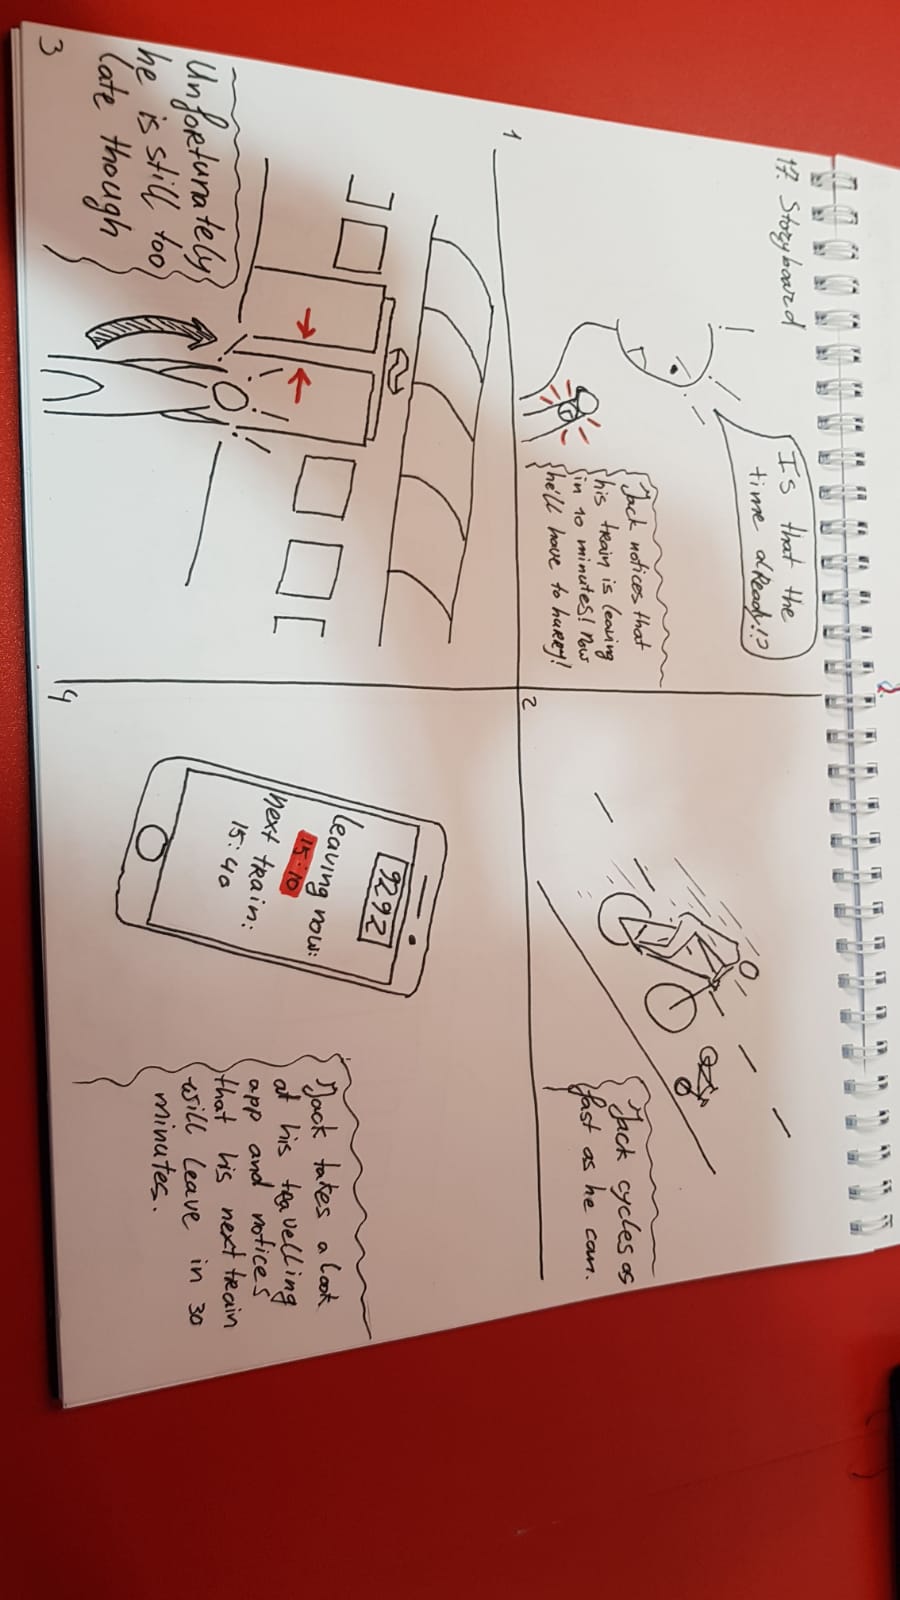 17. Storyboard
1
Is that the
time already!?
Jack notices that
his train is leaving
in 10 minutes! Now
he'll have to hurry!
2
Jack cycles as
fast as he can.
3
Unfortunately
he is still too
late though
4
9292
leaving now:
15:10
next train:
15:40
Jack takes a look
at his travelling
app and notices
that his next train
will leave in 30
minutes.